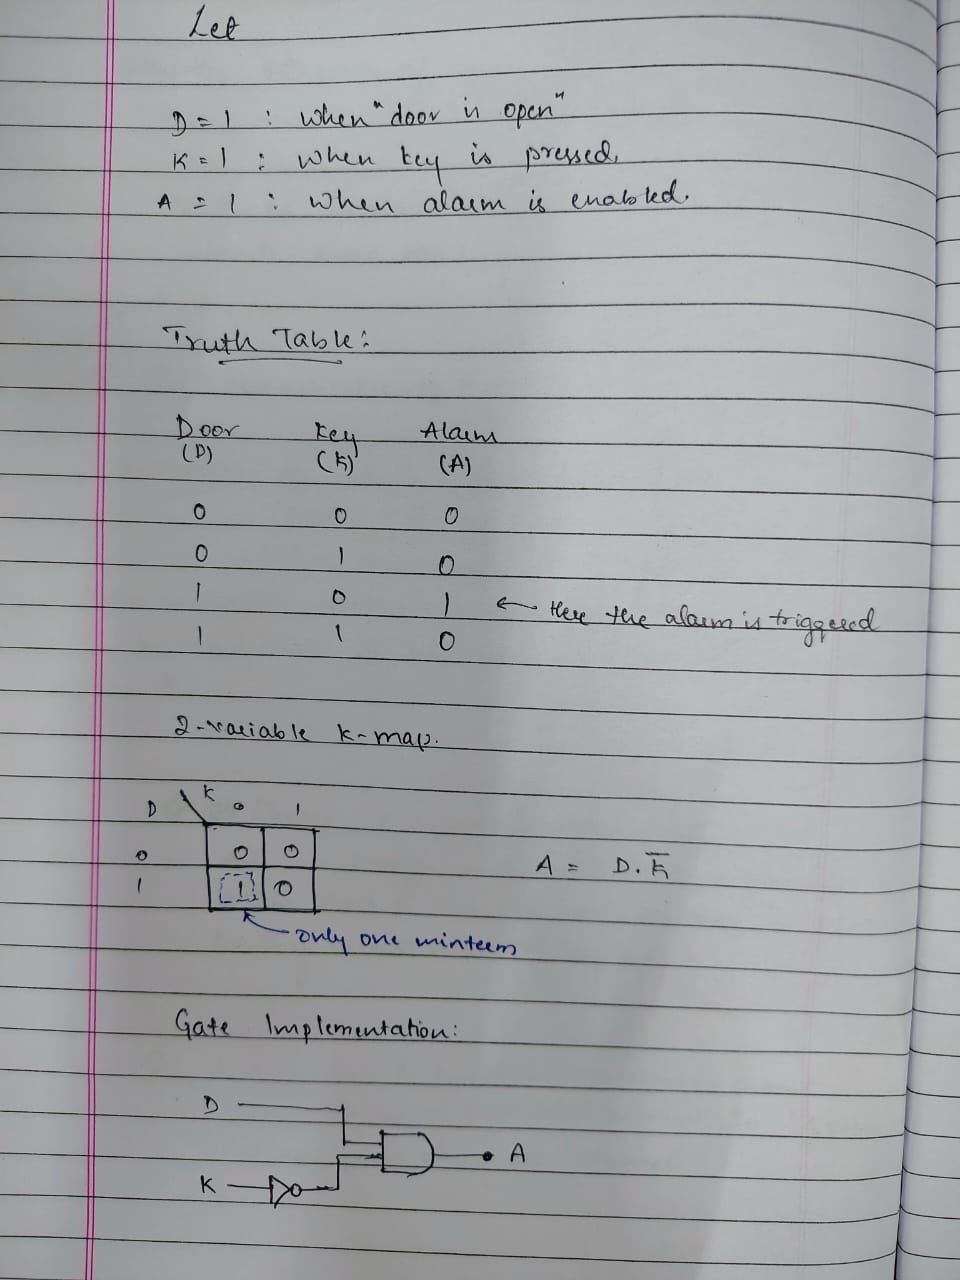 Let
D = 1 : when "door is open"
K = 1 : when key is pressed.
A = 1 : when alarm is enabled.
Truth Table:
Door Key Alarm
(D) (K) (A)
0 0 0
0 1 0
1 0 1 ← Here the alarm is triggered
1 1 0
2-variable k-map.
D K 0 1
0 0 0
1 1 0
A = D.K̅
only one minterm
Gate Implementation:
D
A
K